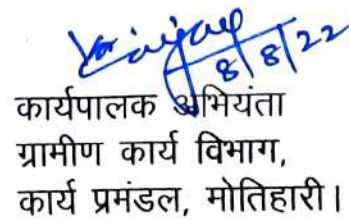 8/8/22
कार्यपालक अभियंता
ग्रामीण कार्य विभाग,
कार्य प्रमंडल, मोतिहारी।